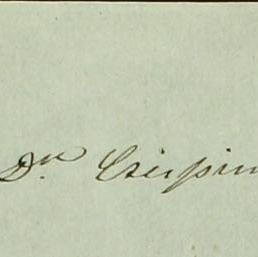 Dn Crispin